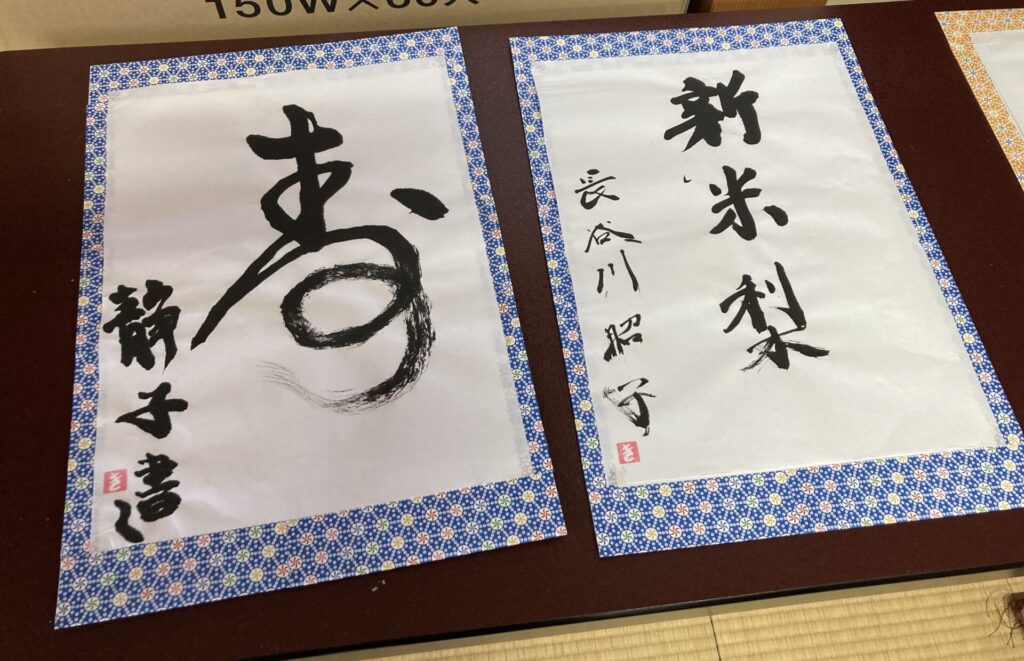 150W×
寿
静子書
新米梨
長谷川昭子